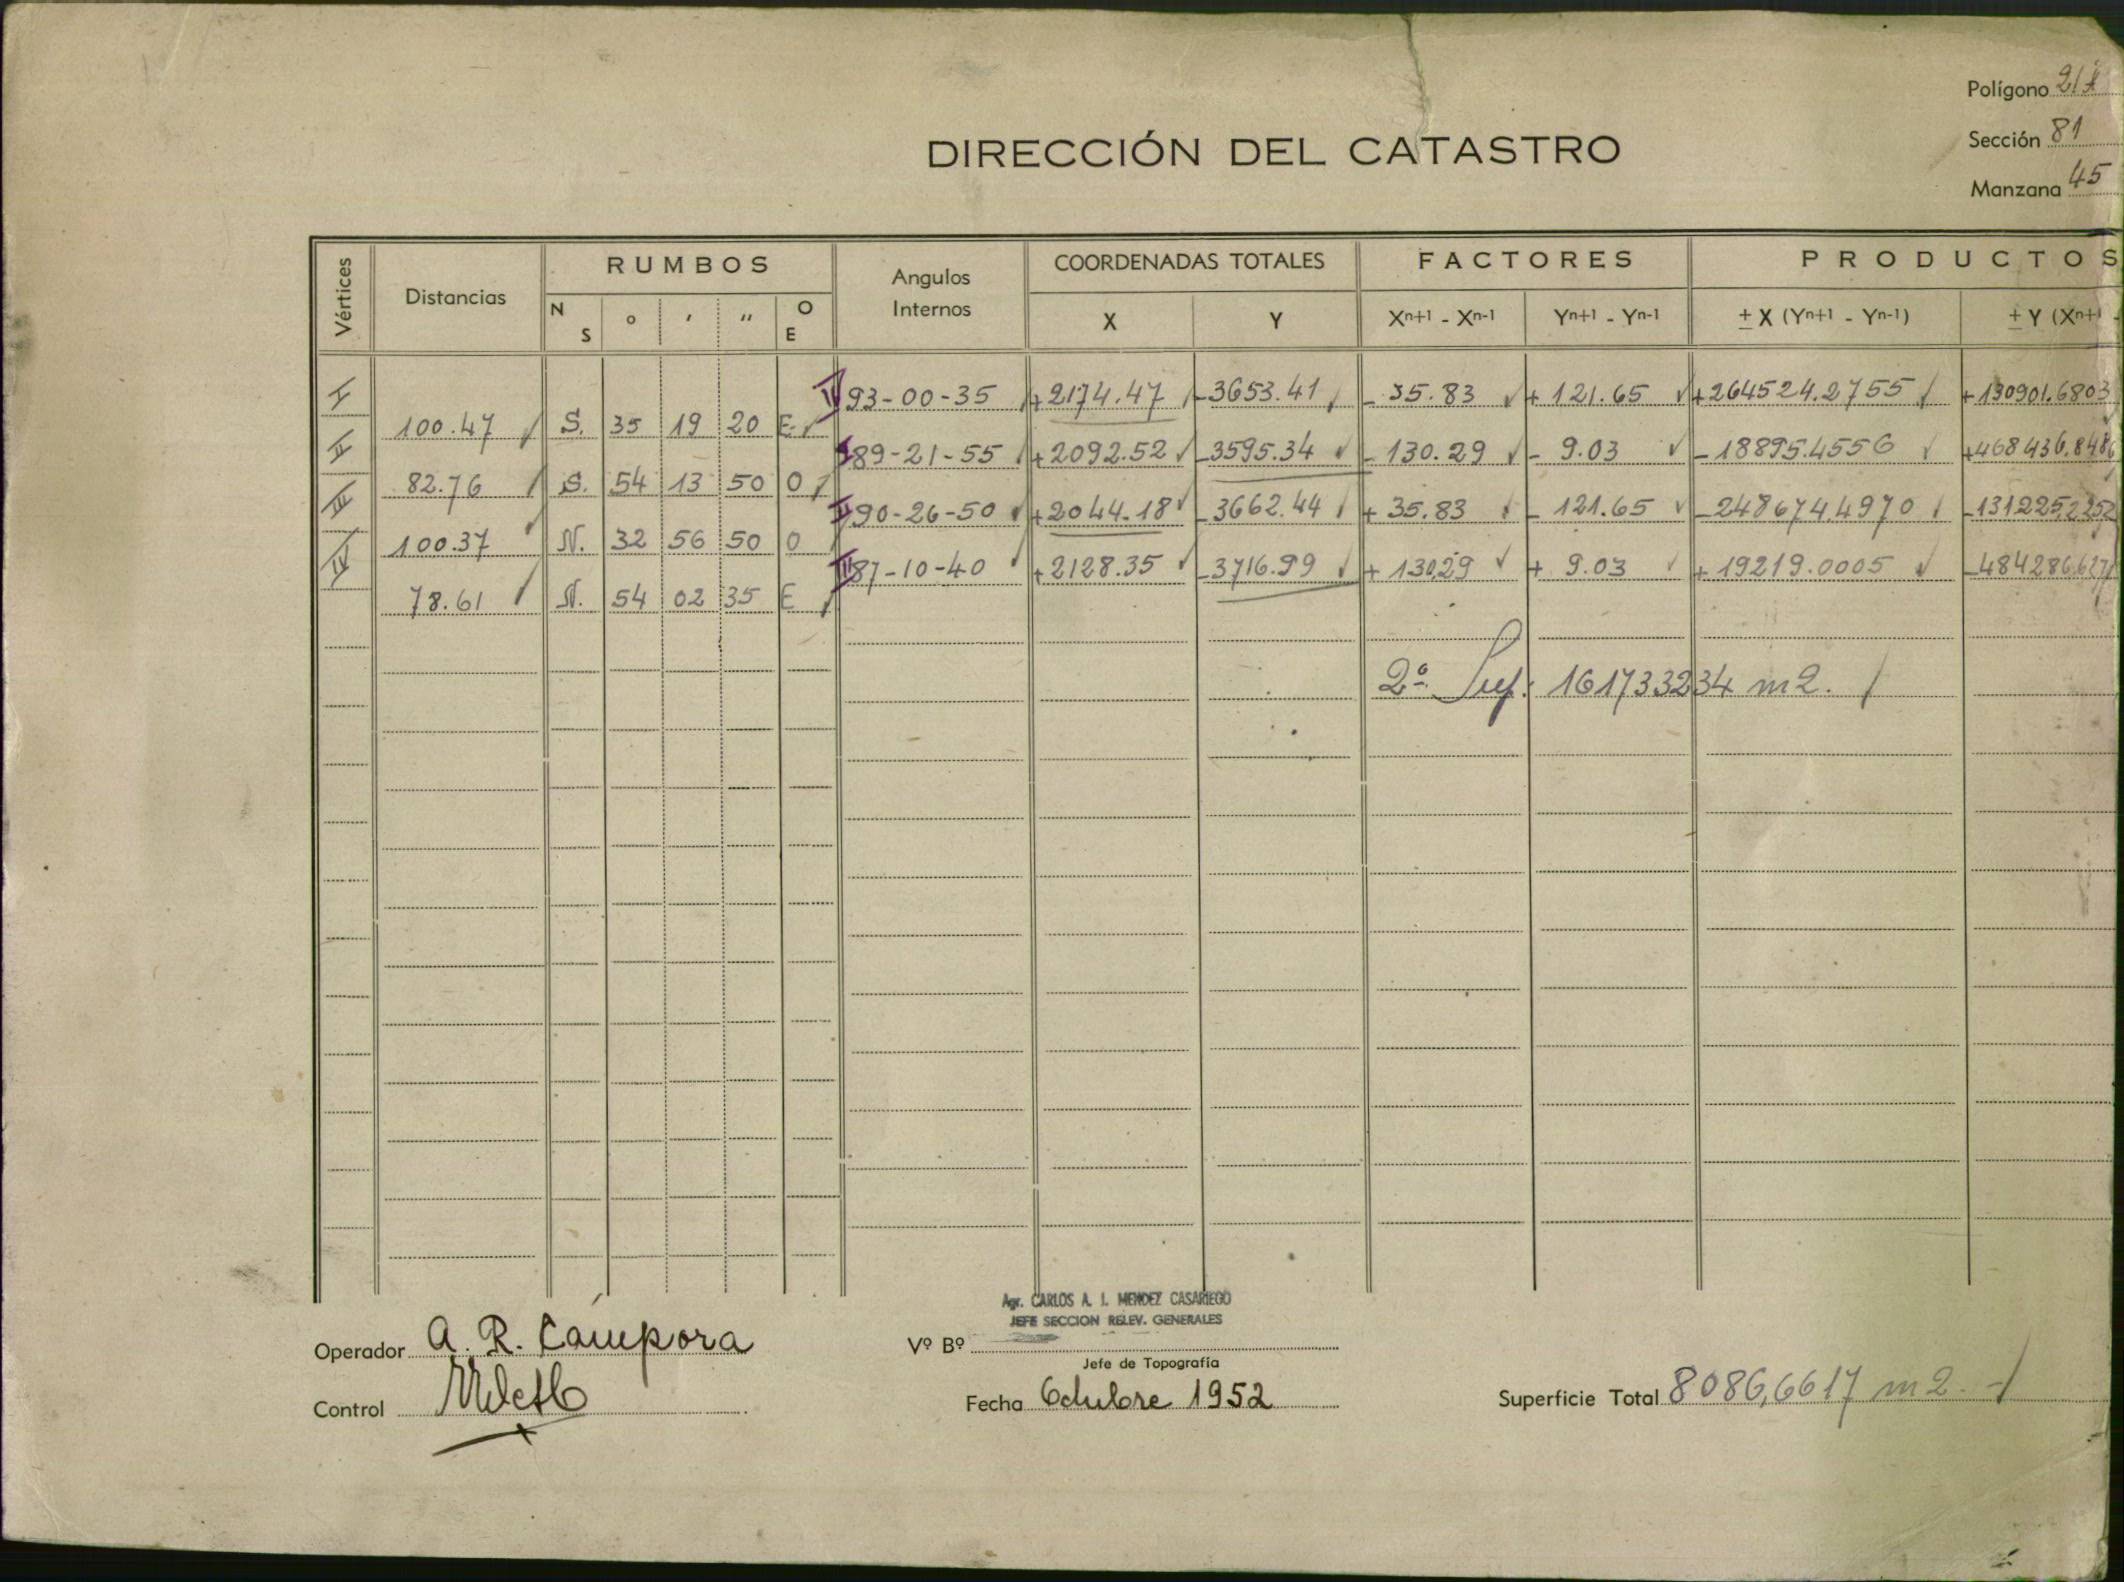 Polígono
Sección 81
Manzana 45
DIRECCIÓN DEL CATASTRO
Vértices Distancias RUMBOS Angulos Internos COORDENADAS TOTALES FACTORES PRODUCTOS
N S ° ' " O E X Y Xn+1 - Xn-1 Yn+1 - Yn-1 ± X (Yn+1 - Yn-1) ± Y (Xn+1 -
I IV 93-00-35 +2174.47 -3653.41 - 35.83 + 121.65 +264524.2755 +130901.6803
100.47 S. 35 19 20 E
II I 89-21-55 +2092.52 -3595.34 - 130.29 - 9.03 -18895.4556 +468436.8486
82.76 S. 54 13 50 O
III II 90-26-50 +2044.18 -3662.44 + 35.83 - 121.65 -248674.4970 -131225.2252
100.37 N. 32 56 50 O
IV III 87-10-40 +2128.35 -3716.99 + 130.29 + 9.03 +19219.0005 -484286.627
78.61 N. 54 02 35 E
2ª Sup: 161733234 m2.
Agr. CARLOS A. I. MENDEZ CASARIEGO
JEFE SECCION RELEV. GENERALES
Operador A. R. Cámpora
Vº Bº
Jefe de Topografía
Control
Fecha Octubre 1952
Superficie Total 8086,6617 m2.